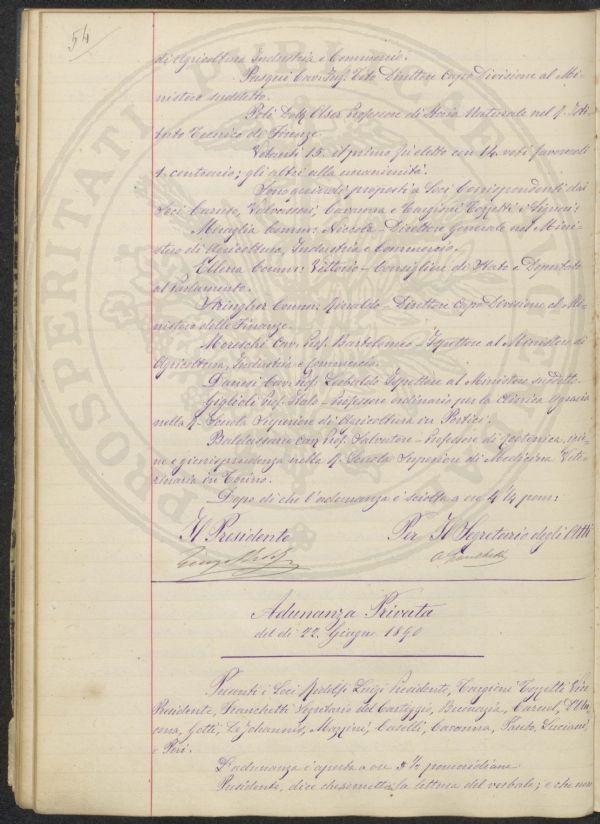 54
di Agricoltura Industria e Commercio.
Pasqui Cav. Prof. Tito Direttore Capo Divisione al Mi-
nistero suddetto.
Poli Dott. Professore di Storia Naturale nel R. Isti-
tuto Tecnico di Firenze
Votanti 15. il primo fu eletto con 14 voti favorevoli
1. contrario; gli altri alla unanimità.
Sono quindi proposti a Soci Corrispondenti dai
Soci Caruso, Cavanna e Targioni Tozzetti i Signori:
Miraglia Comm: Niccola - Direttore Generale nel Mini-
stero di Agricoltura, Industria e Commercio.
Ellena Comm: Vittorio - Consigliere di Stato e Deputato
al Parlamento.
Stringher Comm: - Direttore Capo Divisione al Mi-
nistero delle Finanze.
Moreschi Cav. Prof. Bartolomeo - Ispettore al Ministero di
Agricoltura, Industria e Commercio.
Danesi Cav. Prof. Ispettore al Ministero suddetto.
Giglioli Prof. Italo - Professore ordinario per la Chimica Agraria
nella R. Scuola Superiore di Agricoltura in Portici.
Baldassarre Cav. Prof. Salvatore - Professore di Zootecnica, igie-
ne e giurisprudenza nella R. Scuola Superiore di Medicina Vete-
rinaria in Torino.
Dopo di che l'adunanza è sciolta a ore 4 1/4 pom:
Il Presidente
Per Il Segretario degli Atti
A Franchetti
Adunanza Privata
del dì 22 Giugno 1890
Presenti i Soci Ridolfi Luigi Presidente, Targioni Tozzetti Vice
Presidente, Franchetti Segretario del Carteggio, Caruel,
Gotti, De Johannis, Mazzini, Caselli, Cavanna, Pareto, Luciani
e Peri.
L'adunanza è aperta a ore 3 1/2 pomeridiane
Presidente, dice che la lettura del verbale; e che non